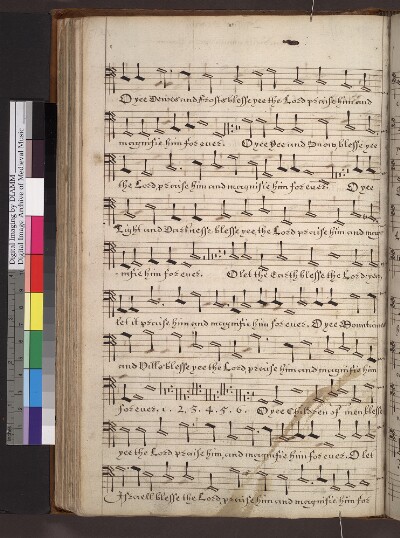 O yee Dewes and Frosts blesse yee the Lord praise him and
magnifie him for ever. O yee Yce and Snow blesse yee
the Lord praise him and magnifie him for ever. O yee
Light and Darknesse blesse yee the Lord praise him and mag-
-nifie him for ever. O let the Earth blesse the Lord: yea,
let it praise him and magnifie him for ever. O yee Mountaines
and Hills blesse yee the Lord praise him and magnifie him
for ever. 1. 2. 3. 4. 5. 6. O yee Children of men blesse
yee the Lord praise him, and magnifie him for ever. O let
Israell blesse the Lord, praise him and magnifie him for
Digital Imaging by DIAMM
Digital Image Archive of Medieval Music